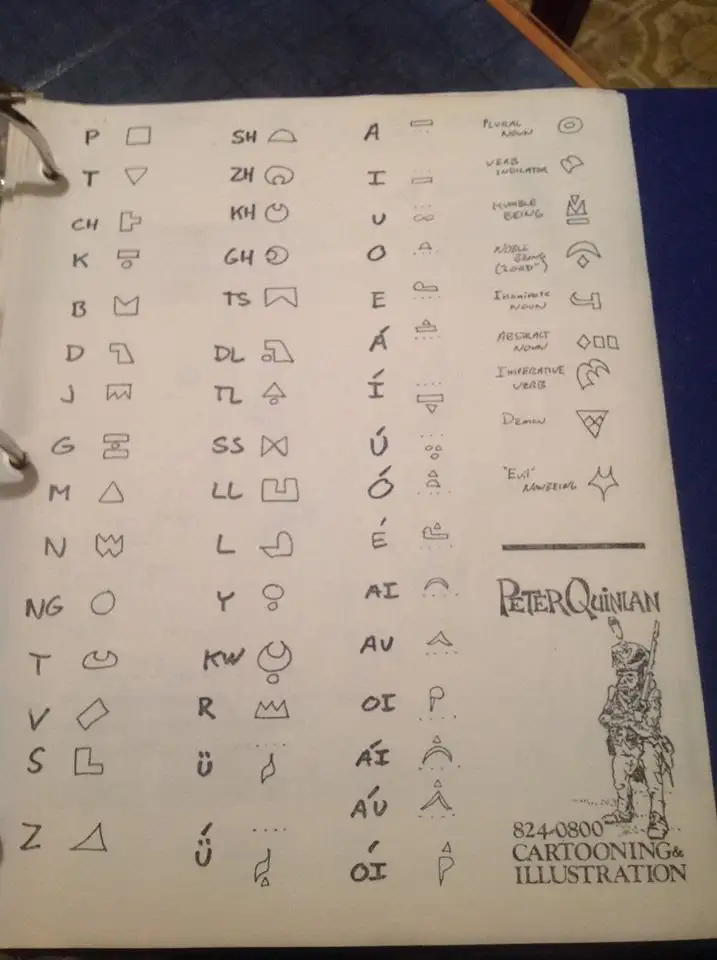 P
T
CH
K
B
D
J
G
M
N
NG
T
V
S
Z
SH
ZH
KH
GH
TS
DL
TL
SS
LL
L
Y
KW
R
Ü
Ǘ
A
I
U
O
E
Á
Í
Ú
Ó
É
AI
AU
OI
ÁI
ÁU
ÓI
PLURAL
NOUN
VERB
INDICATOR
HUMBLE
BEING
NOBLE
BEING
("LORD")
INANIMATE
NOUN
ABSTRACT
NOUN
IMPERATIVE
VERB
DEMON
"EVIL"
NONBEING
PETER QUINLAN
824-0800
CARTOONING &
ILLUSTRATION